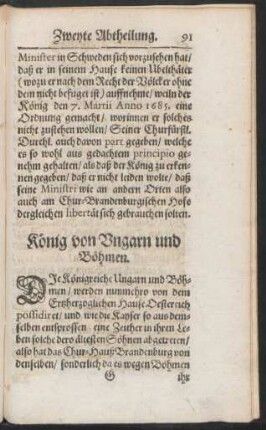 Zweyte Abtheilung. 91
Minister in Schweden sich vorzusehen hat/
daß er in seinem Hause keinen Übelthäter
(wozu er nach dem Recht der Völcker ohne
dem nicht befuget ist) auffnehme/ weiln der
König den 7. Martii Anno 1685. eine
Ordnung gemacht/ worinnen er solches
nicht zustehen wollen/ Seiner Churfürstl.
Durchl. auch davon part gegeben/ welche
es so wohl aus gedachtem principio ge-
nehm gehalten/ als daß der König zu erken-
nen gegeben/ daß er nicht leiden wolte/ daß
seine Ministri wie an andern Orten also
auch am Chur-Brandenburgischen Hofe
dergleichen libertät sich gebrauchen solten.
König von Vngarn und
Böhmen.
DIe Königreiche Ungarn und Böh-
men/ werden nunmehro von dem
Ertzherzoglichen Hause Oesterreich
possidiret/ und wie die Kayser so aus dem-
selben entsprossen eine Zeither in ihren Le-
ben solche dero ältesten Söhnen abgetreten/
also hat das Chur-Hauß Brandenburg von
denselben/ sonderlich da es wegen Böhmen
G ihr